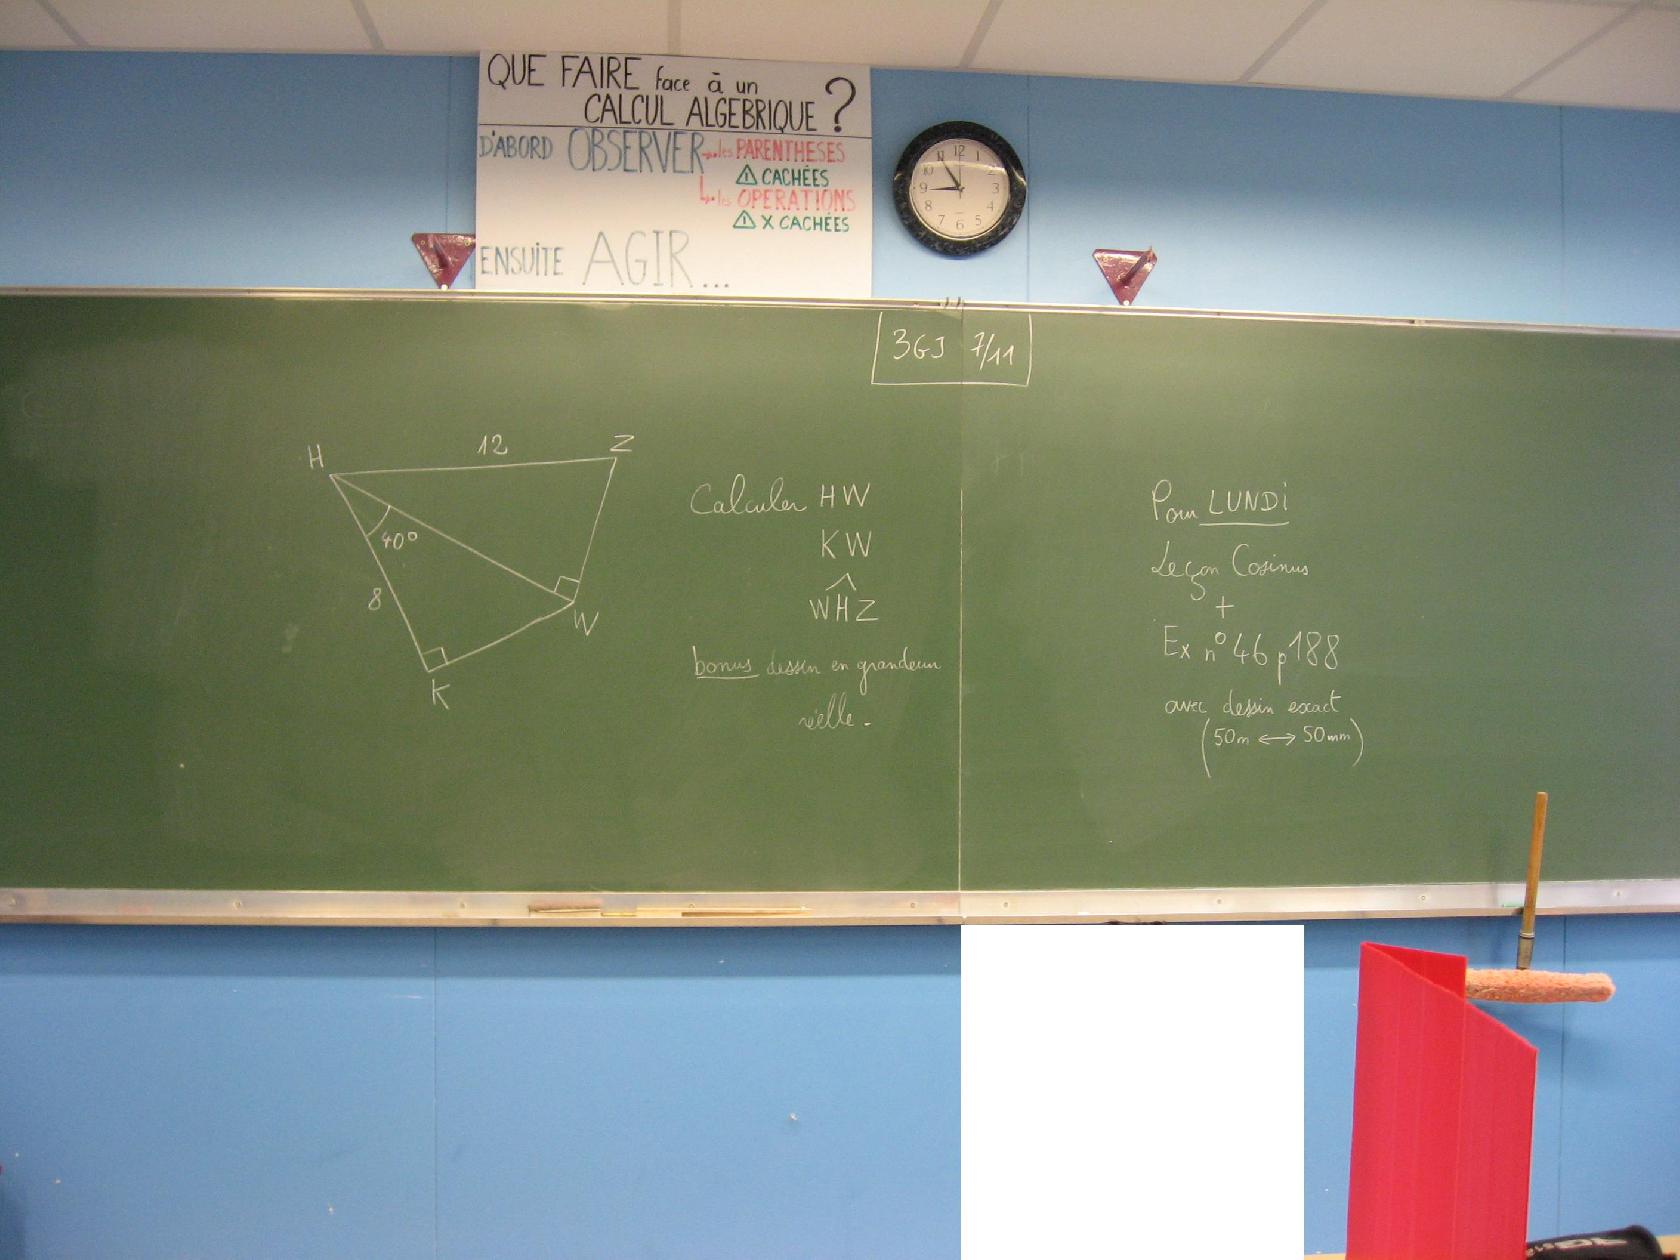 QUE FAIRE face à un
CALCUL ALGEBRIQUE ?
D'ABORD OBSERVER → les PARENTHESES
⚠ CACHÉES
↳ les OPERATIONS
⚠ X CACHÉES
ENSUITE AGIR...
12
1
2
3
4
5
6
7
8
9
10
11
3GJ 7/11
H
12
Z
40°
8
W
K
Calculer HW
KW
WHZ
bonus dessin en grandeur
réelle.
Pour LUNDI
Leçon Cosinus
+
Ex n°46 p188
avec dessin exact
(50m ↔ 50mm)